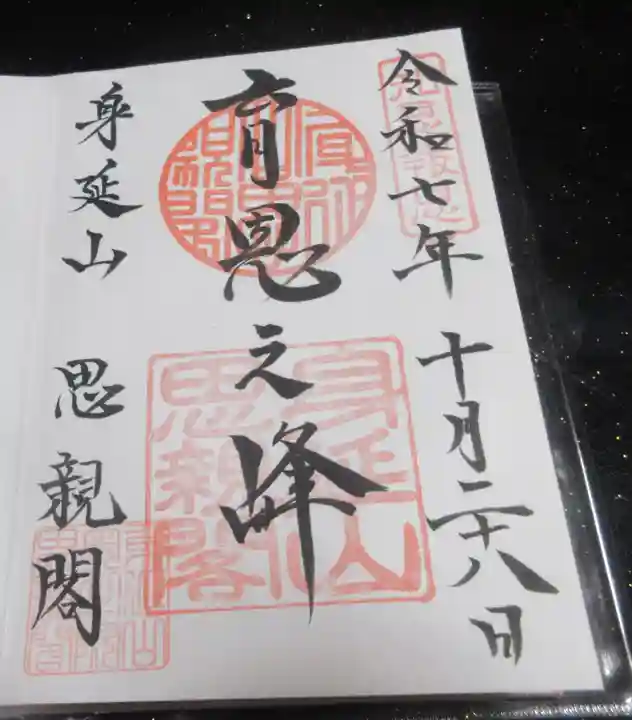 令和七年十月二十八日
育恩之峰
身延山 思親閣
身延山
思親閣